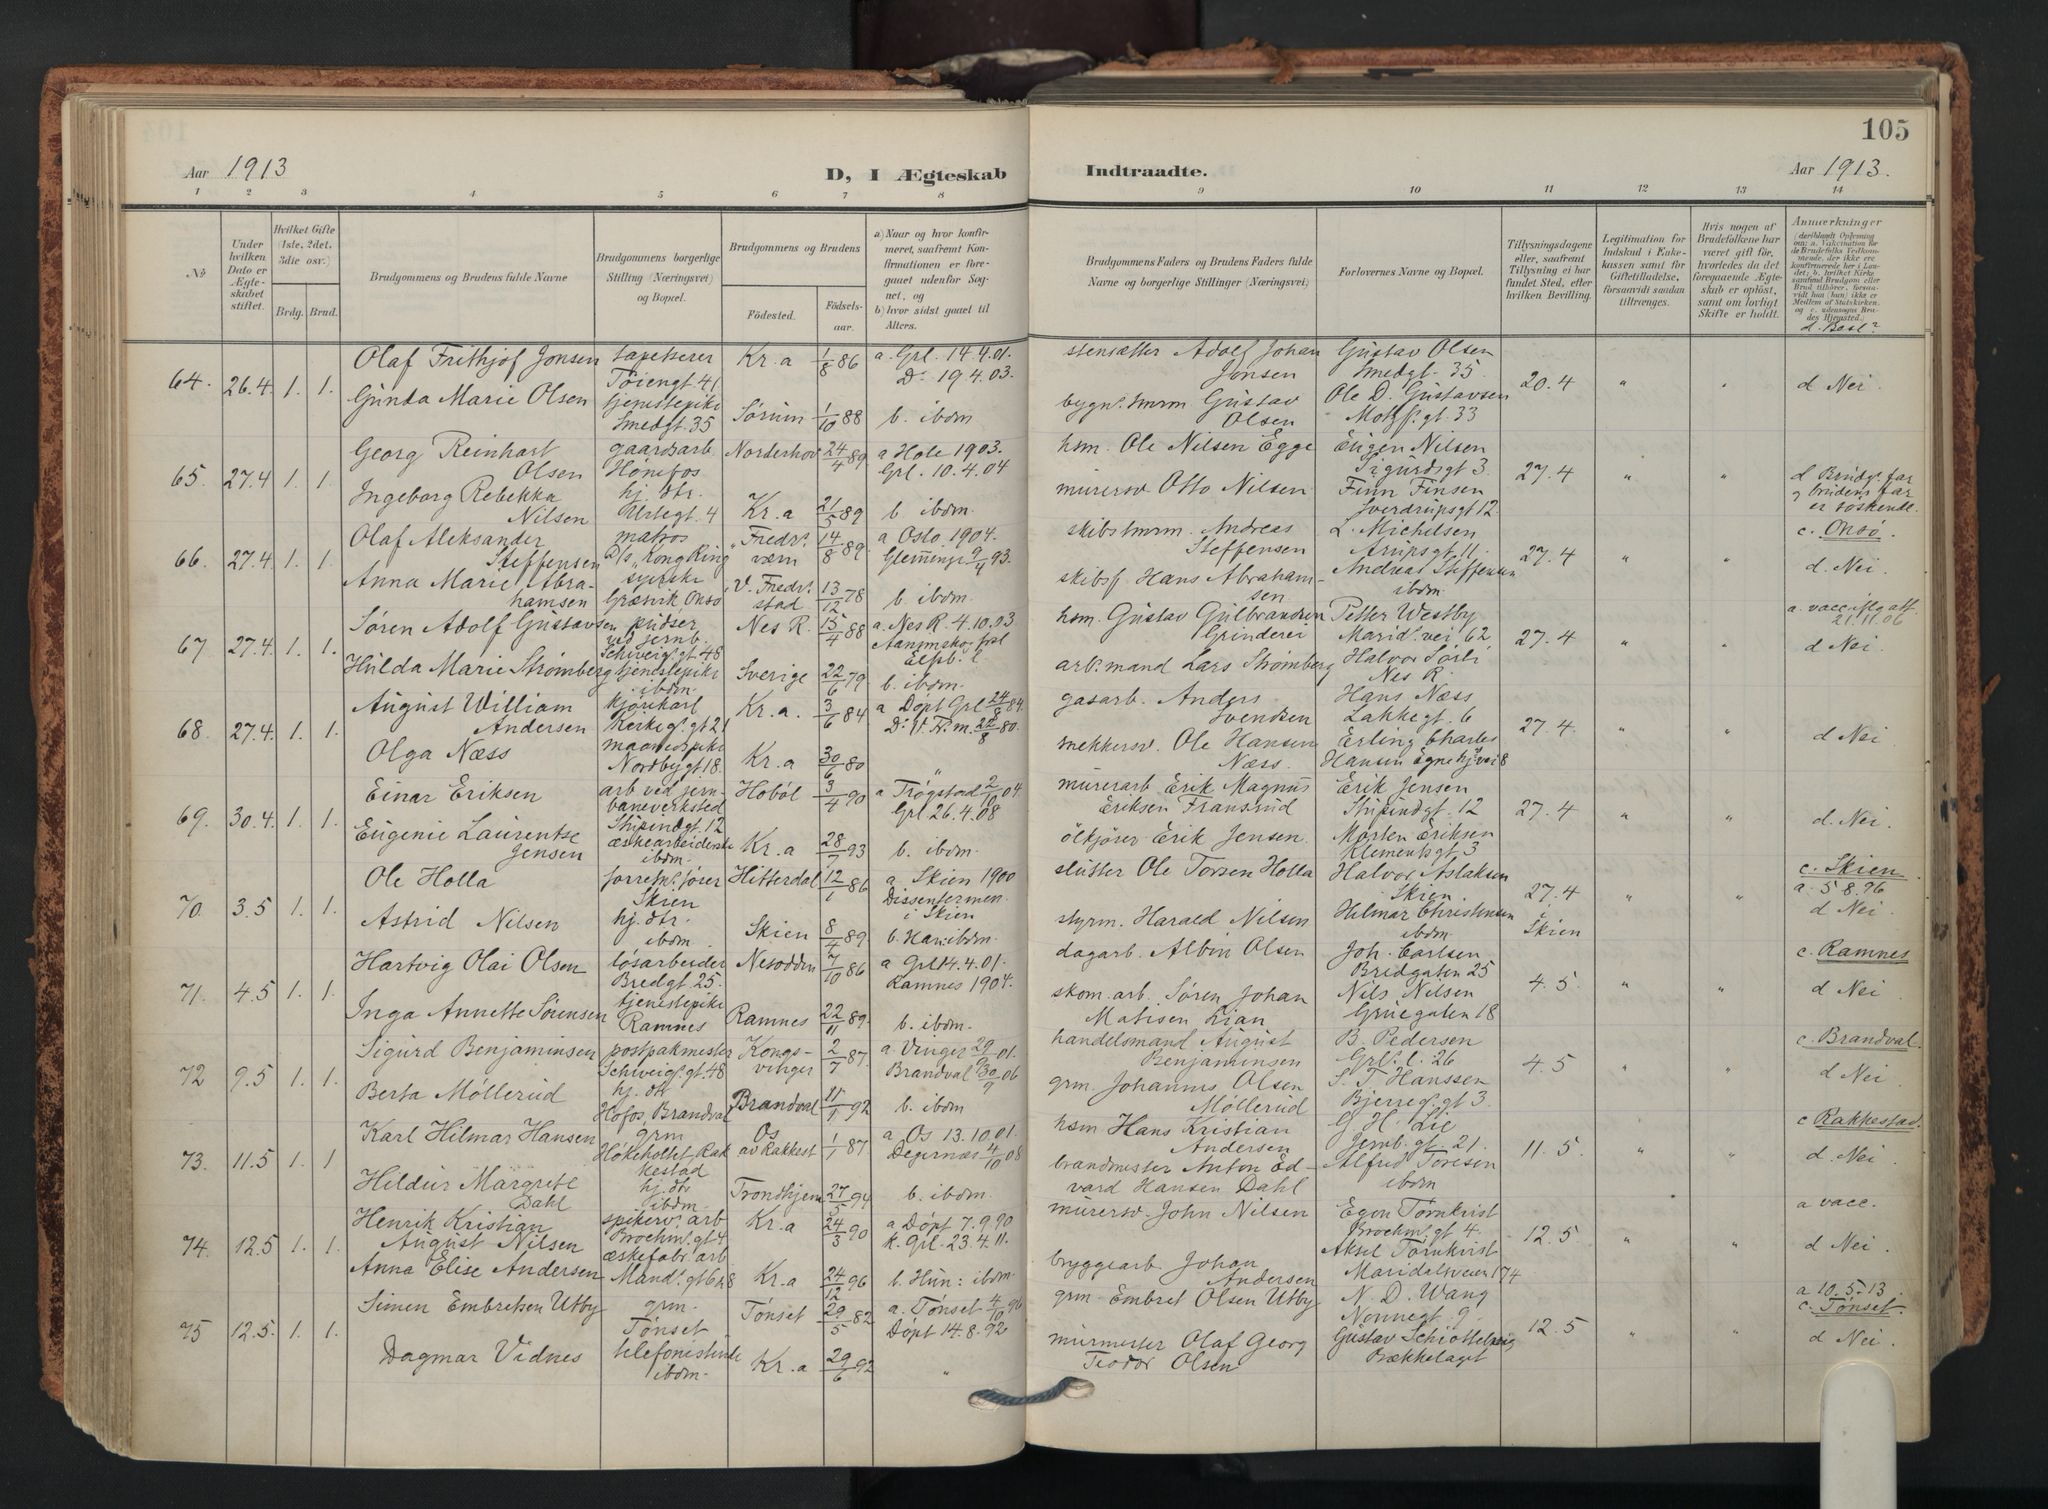 105
Aar 1913
D, I Ægteskab
Indtraadte.
Aar 1913.
1 2 3 4 5 6 7 8 9 10 11 12 13 14
No
Under hvilken Dato er Ægteskabet stiftet.
Hvilket Gifte (1ste, 2det, 3die osv.)
Brdg. Brud.
Brudgommens og Brudens fulde Navne
Brudgommens borgerlige Stilling (Næringsvei) og Bopæl.
Brudgommens og Brudens
Födested.
Födselsaar.
a) Naar og hvor konfirmeret, saafremt Konfirmationen er foregaaet udenfor Sognet, og
b) hvor sidst gaaet til Alters.
Brudgommens Faders og Brudens Faders fulde Navne og borgerlige Stillinger (Næringsvei)
Forlovernes Navne og Bopæl.
Tillysningsdagene eller, saafremt Tillysning ei har fundet Sted, efter hvilken Bevilling.
Legitimation for Indskud i Enkekassen samt for Giftetilladelse, forsaavidt saadan tiltrænges.
Hvis nogen af Brudefolkene har været gift før, hvorledes da det foregaaende Ægteskab er oplöst, samt om lovligt Skifte er holdt.
Anmærkninger
64. 26.4 1. 1. Olaf Frithjof Jonsen tapetserer Tøiengt. 41 Kr.a 1/8 86 a. Grl. 14.4.01. D: 19.4.03. stensætter Adolf Johan Jonsen Gustav Olsen Smedgt. 35. 20.4 " " d Nei.
Gunda Marie Olsen tjenestepike Smedgt. 35 Sørum 1/10 88 b. ibdm Gustav Olsen Ole D. Gustavsen 33
65. 27.4 1. 1. Georg Reinhart Olsen gaardsarb. Hønefos Norderhov 24/4 89 a Hole 1903. Grl. 10.4.04 hsm. Ole Nilsen Egge Eugen Nilsen Sigurdsgt 3. 27.4 " " d Brudg. far og brudens far er søskende.
Ingeborg Rebekka Nilsen hj. dtr. Urtegt. 4 Kr.a 21/5 89 b. ibdm murersv Otto Nilsen Finn Finsen Sverdrupsgt 12.
66. 27.4. 1. 1. Olaf Aleksander Steffensen matros D/s "Kong Ring "Fredr. værn 14/8 89. a Oslo 1904. Andreas Steffensen L. Michelsen Arupsgt. 11. 27.4 " " c. Onsø d. Nei.
Anna Marie Abrahamsen Græsvik, Onsø V. Fredr. stad 13/12 78 b. ibdm. Hans Abrahamsen Andreas Steffensen ibdm.
67. 27.4. 1. 1. Søren Adolf Gustavsen pudser ved jernb. Schweig. gt. 48 Nes R. 15/4 88 a. Nes R. 4.10.03. hsm. Gustav Gulbrandsen Grinderei Petter Westby Marid. vei 62 27.4 " " 21.11.06 d Nei.
Hulda Marie Strømberg tjenestepike ibdm. Sverige 22/6 79 b. ibdm. arb. mand Lars Strømberg Halvor Sørli Nes R.
68. 27.4. 1. 1. August William Andersen kjørekarl gt 21 Kr.a. 3/6 84 a Døpt Grl 24/8 84. gasarb. Anders Svendsen Hans Næss Lakkegt. 6 27.4 " " d Nei
Olga Næss Nordbygt 18. Kr.a 30/6 80 " snekkersv. Ole Hansen Næss. Erling Charles Hansen
69. 30.4. 1. 1. Einar Eriksen arb ved jernbaneverksted Stipendgt. 12 Hobøl 3/4 90 a Trøgstad 2/10 04. Grl 26.4.08 murerarb Erik Magnus Eriksen Fransrud Erik Jensen Stipendgt. 12 27.4 " " d. Nei.
Eugenie Laurentse Jensen æskearbeiderske ibdm. Kr.a 28/7 93 b. ibdm. ølkjører Erik Jensen. Morten Eriksen Klementsgt 3
70. 3.5 1. 1. Ole Holla Skien Hitterdal 12/1 86 a. Skien 1900 slutter Ole Torsen Holla Halvor Aslaksen Skien. 27.4 i Skien " " c. Skien a. 5.8.96 d Nei
Astrid Nilsen hj. dtr. ibdm. Skien 8/4 89. Dissentermen. i Skien b. Han: ibdm. styrm. Harald Nilsen Hilmar Christensen ibdm.
71. 4.5 1. 1. Hartvig Olai Olsen løsarbeider Bredgt. 25. Nesodden 7/10 86 a Grl 14.4.01. Ramnes 1904. dagarb. Albin Olsen Joh. Carlsen Bredgaten 25 4.5. " " c. Ramnes d Nei
Inga Annette Sørensen tjenestepike Ramnes Ramnes 22/11 89. b. ibdm. skom. arb. Søren Johan Matisen Lian Nils Nilsen Grüegaten 18
72 9.5 1. 1. Sigurd Benjaminsen postpakmester Schweig. gt. 48 Kongsvinger 2/7 87 a. Vinger 29/9 01. Brandval 30/9 06 handelsmand August Benjaminsen B. Pedersen Grl. l. 26 4.5 " " c. Brandval. d Nei.
Berta Møllerud hj. dtr Hofos, Brandval Brandval 11/1 92 b. ibdm grm. Johannes Olsen Møllerud S. T. Hanssen Bjerreg. gt 3.
73. 11.5 1. 1 Karl Hilmar Hansen grm Høkeholtet, Rakkestad Os av Rakkest 1/1 87. a. Os 13.10.01. Degernæs 4/10 08 hsm Hans Kristian Andersen G. H. Lie Jernb. gt. 21. 11.5. " " c Rakkestad. d. Nei.
Hildur Margrete Dahl hj. dtr ibdm. Trondhjem 27/5 94 b. ibdm. brandmester Anton Edvard Hansen Dahl Alfred Toresen ibdm
74. 12.5 1. 1. Henrik Kristian August Nilsen spikerv. arb Brochm. gt 4 Kr.a 24/3 90 a. Døpt 7.9.90 k. Grl. 23.4.11. murersv. John Nilsen Egon Tørnkvist Brochm. gt 4. 12.5. " " a vacc. d Nei.
Anna Elise Andersen æskefabr. arb Mand. gt 6 Kr.a 24/12 96 b. Hun: ibdm byggearb Johan Andersen Aksel Tørnkvist Maridalsveien 174
75 12.5. 1. 1. Simen Embretsen Utby grm. Tønset Tønset 29/5 82 a. Tønset 4/10 96 grm Embret Olsen Utby N. D. Wang Nonnegt. 9. 12.5 " " a 10.5.13 c. Tønset. d Nei.
Dagmar Vidnes telefonistinde ibdm. Kr.a 29/6 92 Døpt 14.8.92 " murmester Olaf Georg Teodor Olsen Gustav Bækkelaget